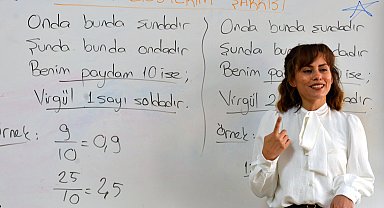 ŞARKISI
Onda bunda şundadır
Şunda bunda ondadır
Benim paydam 10 ise;
Virgül 1 sayı soldadır.
rnek:
9/10 = 0,9
25/10 = 2,5
Onda bunda şundadır
Şunda bu ndadır
Benim pay ise;
Virgül 2 adır.
Örnek: